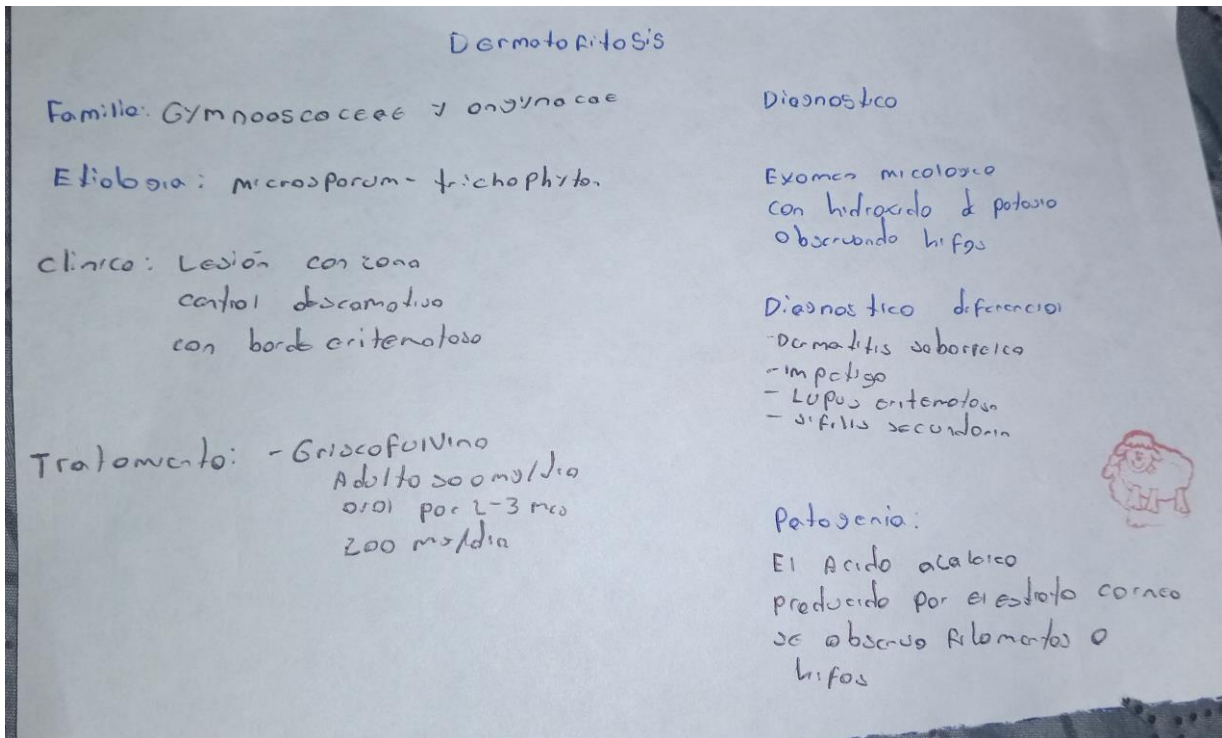 Dermatofitosis
Familia: Gymnoascaceae y ongynacae
Etiologia: microsporum - trichophyton
Clinica: Lesión con zona
central descamativa
con borde eritematoso
Tratamiento: - Griseofulvina
Adulto 500 mg/dia
oral por 2-3 mes
200 mg/dia
Diagnostico
Examen micologico
con hidroxido d potasio
observando hifas
Diagnostico diferencial
- Dermatitis seborreica
- impetigo
- Lupus eritematoso
- sifilis secundaria
Patogenia:
El Acido
producido por el estrato corneo
se observa filamentos o
hifas